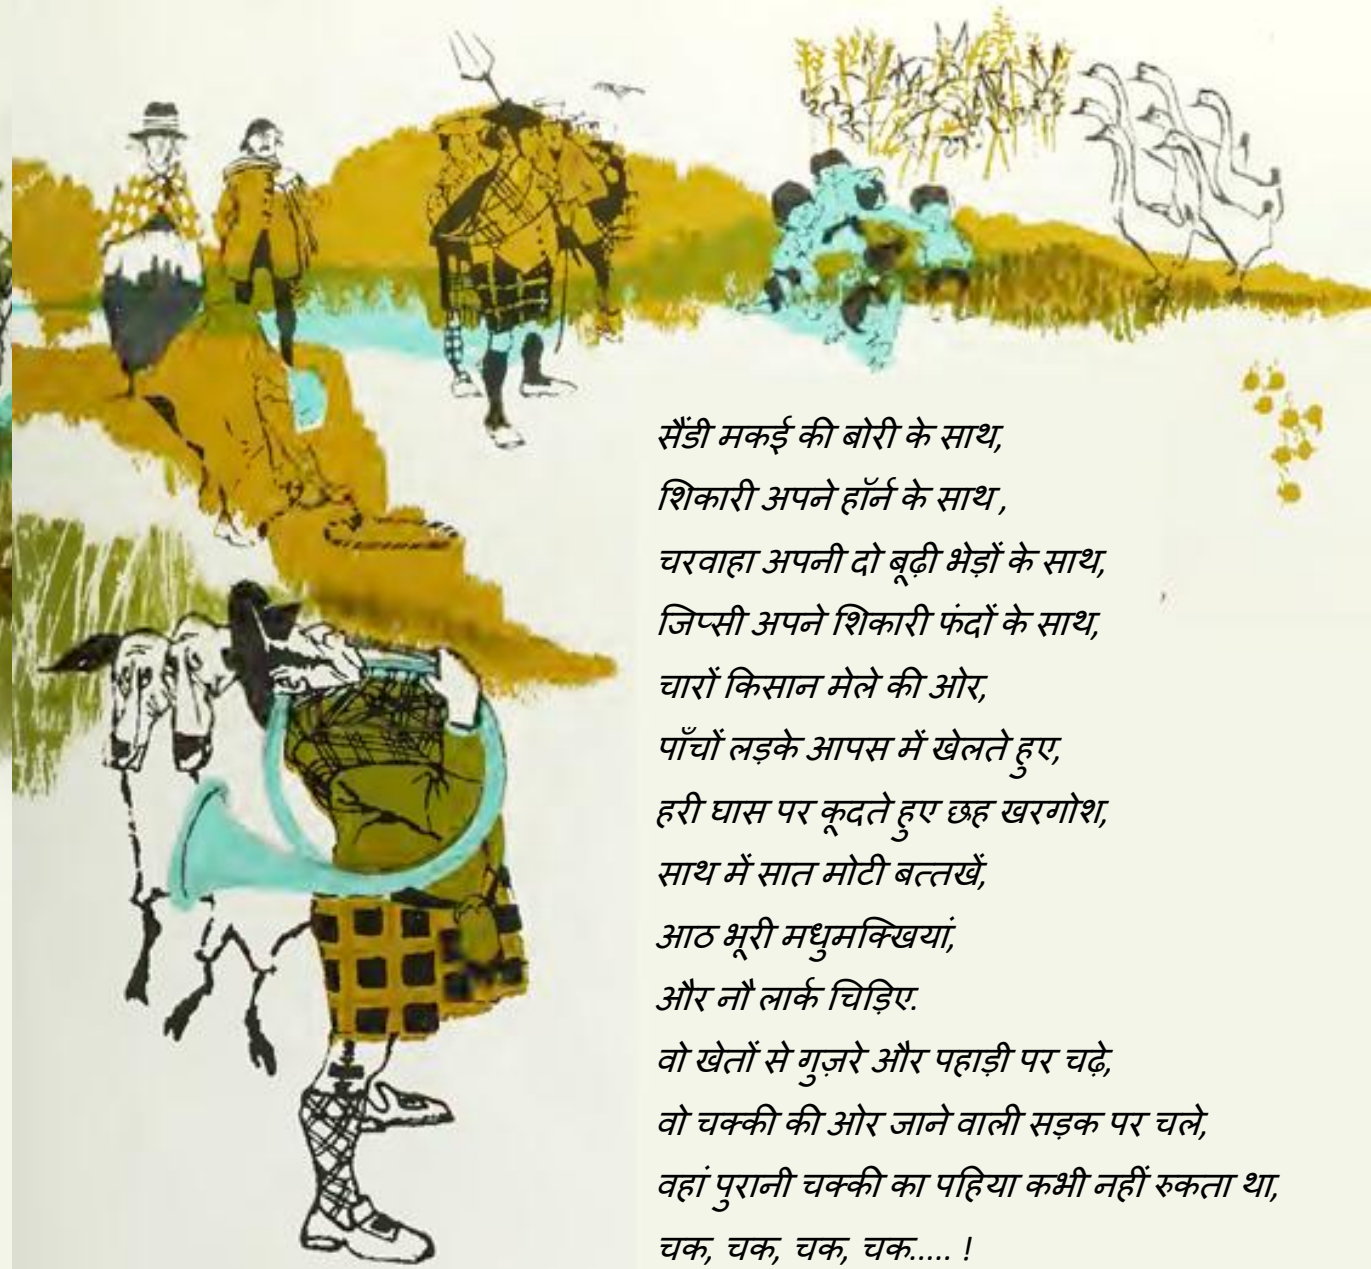 सैंडी मकई की बोरी के साथ,
शिकारी अपने हॉर्न के साथ ,
चरवाहा अपनी दो बूढ़ी भेड़ों के साथ,
जिप्सी अपने शिकारी फंदों के साथ,
चारों किसान मेले की ओर,
पाँचों लड़के आपस में खेलते हुए,
हरी घास पर कूदते हुए छह खरगोश,
साथ में सात मोटी बत्तखें,
आठ भूरी मधुमक्खियां,
और नौ लार्क चिड़िए.
वो खेतों से गुज़रे और पहाड़ी पर चढ़े,
वो चक्की की ओर जाने वाली सड़क पर चले,
वहां पुरानी चक्की का पहिया कभी नहीं रुकता था,
चक, चक, चक, चक..... !